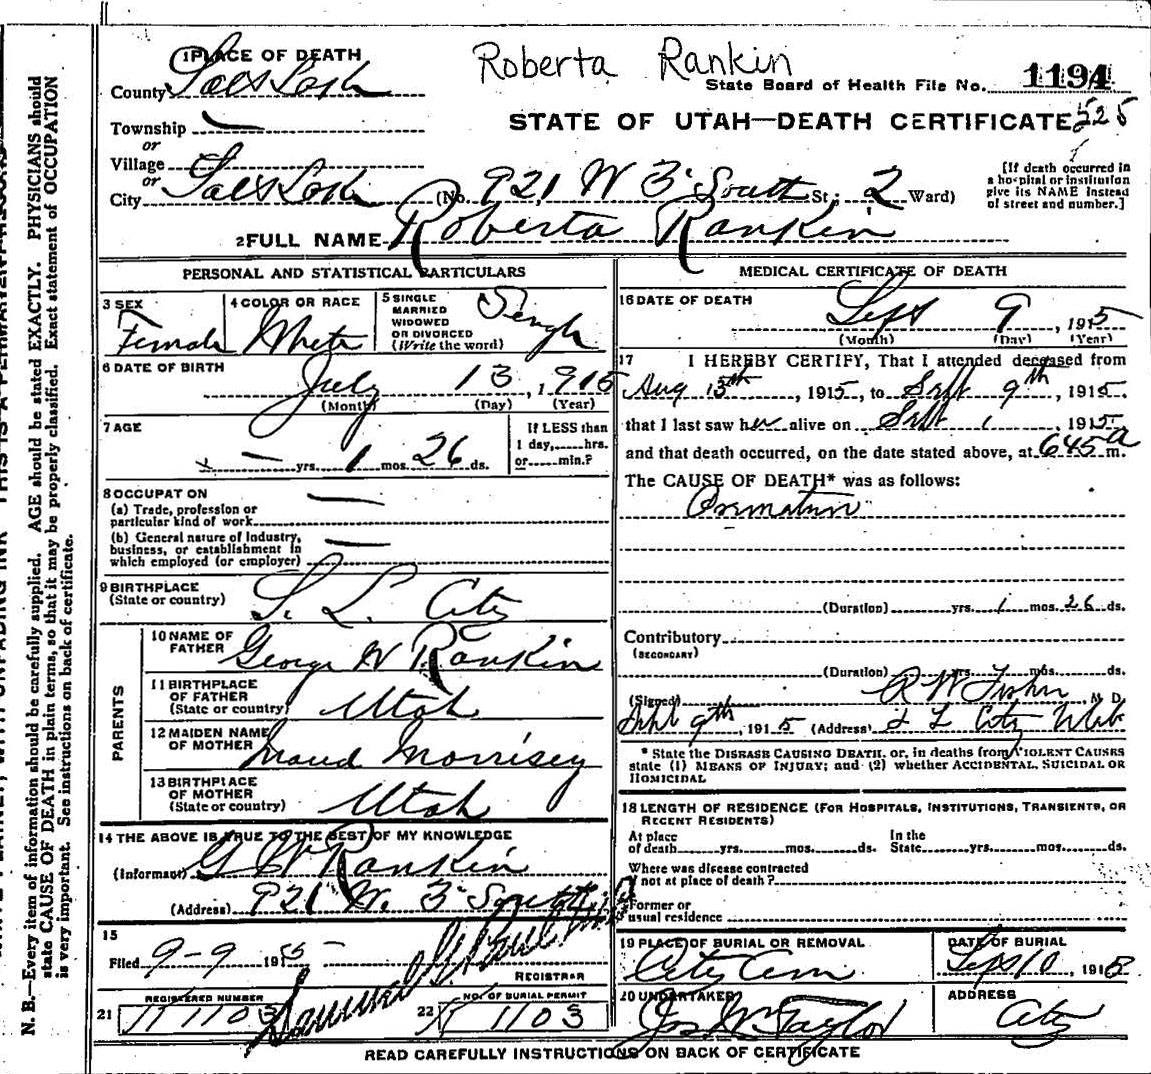 Roberta Rankin
1 PLACE OF DEATH
County Salt Lake
State Board of Health File No. 1194
525
Township —
or
Village
or
City Salt Lake
STATE OF UTAH—DEATH CERTIFICATE
(No. 921 W 3 South St.; 2 Ward)
[If death occurred in
a hospital or institution
give its NAME instead
of street and number.]
2 FULL NAME Roberta Rankin
PERSONAL AND STATISTICAL PARTICULARS
3 SEX
Female
4 COLOR OR RACE
White
5 SINGLE
MARRIED
WIDOWED
OR DIVORCED
(Write the word)
Single
6 DATE OF BIRTH
July 13, 1915
(Month) (Day) (Year)
7 AGE
— yrs. 1 mos. 26 ds.
If LESS than
1 day, hrs.
or min.?
8 OCCUPATION
(a) Trade, profession or
particular kind of work —
(b) General nature of Industry,
business, or establishment in
which employed (or employer) —
9 BIRTHPLACE
(State or country)
S. L. City
PARENTS
10 NAME OF
FATHER
George W Rankin
11 BIRTHPLACE
OF FATHER
(State or country)
Utah
12 MAIDEN NAME
OF MOTHER
Maud Morrisey
13 BIRTHPLACE
OF MOTHER
(State or country)
Utah
14 THE ABOVE IS TRUE TO THE BEST OF MY KNOWLEDGE
(Informant) G W Rankin
(Address) 921 W. 3 South
15
Filed 9-9 1915
Samuel G. Paul
REGISTRAR
21 REGISTERED NUMBER
1103
22 NO. OF BURIAL PERMIT
1103
MEDICAL CERTIFICATE OF DEATH
16 DATE OF DEATH
Sept 9, 1915
(Month) (Day) (Year)
17 I HEREBY CERTIFY, That I attended deceased from
Aug 15th, 1915, to Sept 9th, 1915.
that I last saw her alive on Sept 1, 1915
and that death occurred, on the date stated above, at 645 a m.
The CAUSE OF DEATH* was as follows:
Premature
(Duration) yrs. 1 mos. 26 ds.
Contributory
(SECONDARY)
(Duration) yrs. mos. ds.
(Signed) R W Fisher, M. D.
Sept 9th, 1915 (Address) S L City Utah
* State the DISEASE CAUSING DEATH, or, in deaths from VIOLENT CAUSES
state (1) MEANS OF INJURY; and (2) whether ACCIDENTAL, SUICIDAL OR
HOMICIDAL
18 LENGTH OF RESIDENCE (FOR HOSPITALS, INSTITUTIONS, TRANSIENTS, OR
RECENT RESIDENTS)
At place
of death yrs. mos. ds.
In the
State yrs. mos. ds.
Where was disease contracted
if not at place of death?
Former or
usual residence
19 PLACE OF BURIAL OR REMOVAL
City Cem
DATE OF BURIAL
Sept 10, 1915
20 UNDERTAKER
Jos Wm Taylor
ADDRESS
City
READ CAREFULLY INSTRUCTIONS ON BACK OF CERTIFICATE
N. B.—Every item of information should be carefully supplied. AGE should be stated EXACTLY. PHYSICIANS should
state CAUSE OF DEATH in plain terms, so that it may be properly classified. Exact statement of OCCUPATION
is very important. See instructions on back of certificate.